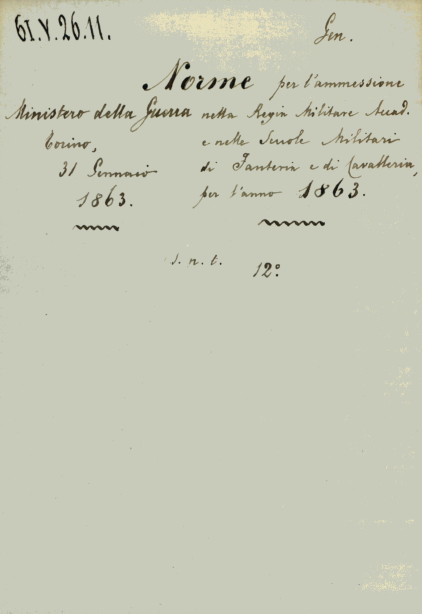 61.V.26.11.
Gen.
Norme per l'ammessione
Ministero della Guerra nella Regia Militare Accad.
Torino, e nelle Scuole Militari
31 Gennaio di Fanteria e di Cavalleria,
1863. per l'anno 1863.
s. n. t. 12º